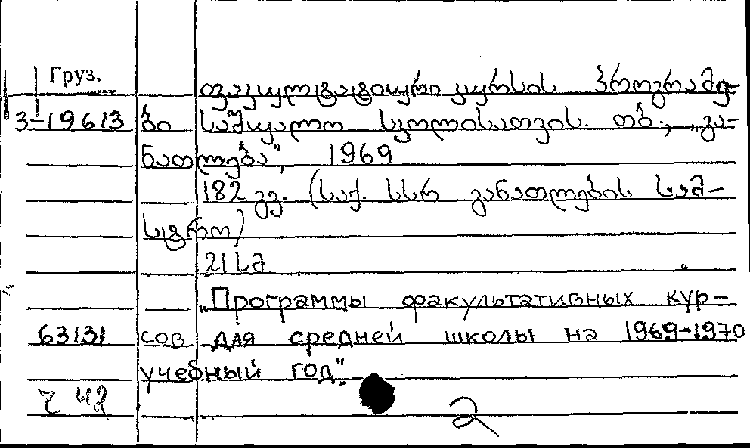 Груз.
ფაკულტატიური კურსის პროგრამე-
3-19613 ბი საშუალო სკოლისათვის. თბ., „გა-
ნათლება", 1969
182 გვ. (საქ. სსრ განათლების სამ-
ინისტრო)
21 სმ
„Программы факультативных кур-
63131 сов для средней школы на 1969-1970
учебный год".
2